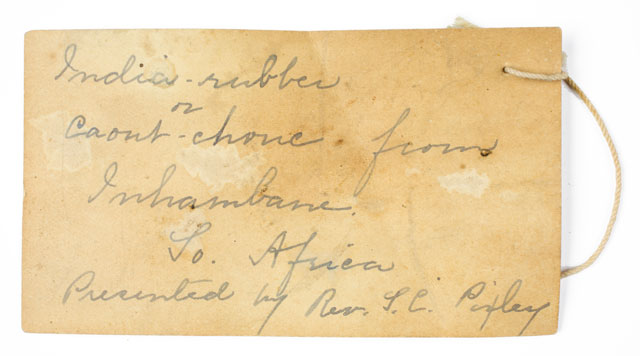 India-rubber
or
Caout-chouc from
Inhambane.
So. Africa
Presented by Rev. S. C. Pixley